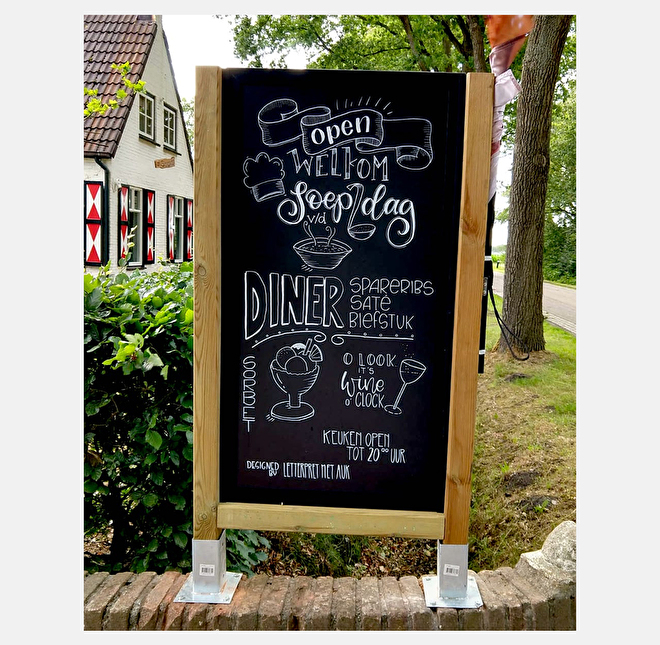 open
WELKOM
Soep
v/d
dag
DINER
SPARERIBS
SATÉ
BIEFSTUK
SORBET
O LOOK
IT'S
Wine
O'CLOCK
KEUKEN OPEN
TOT 20⁰⁰ UUR
DESIGNED
BY
LETTERPRET MET AUK